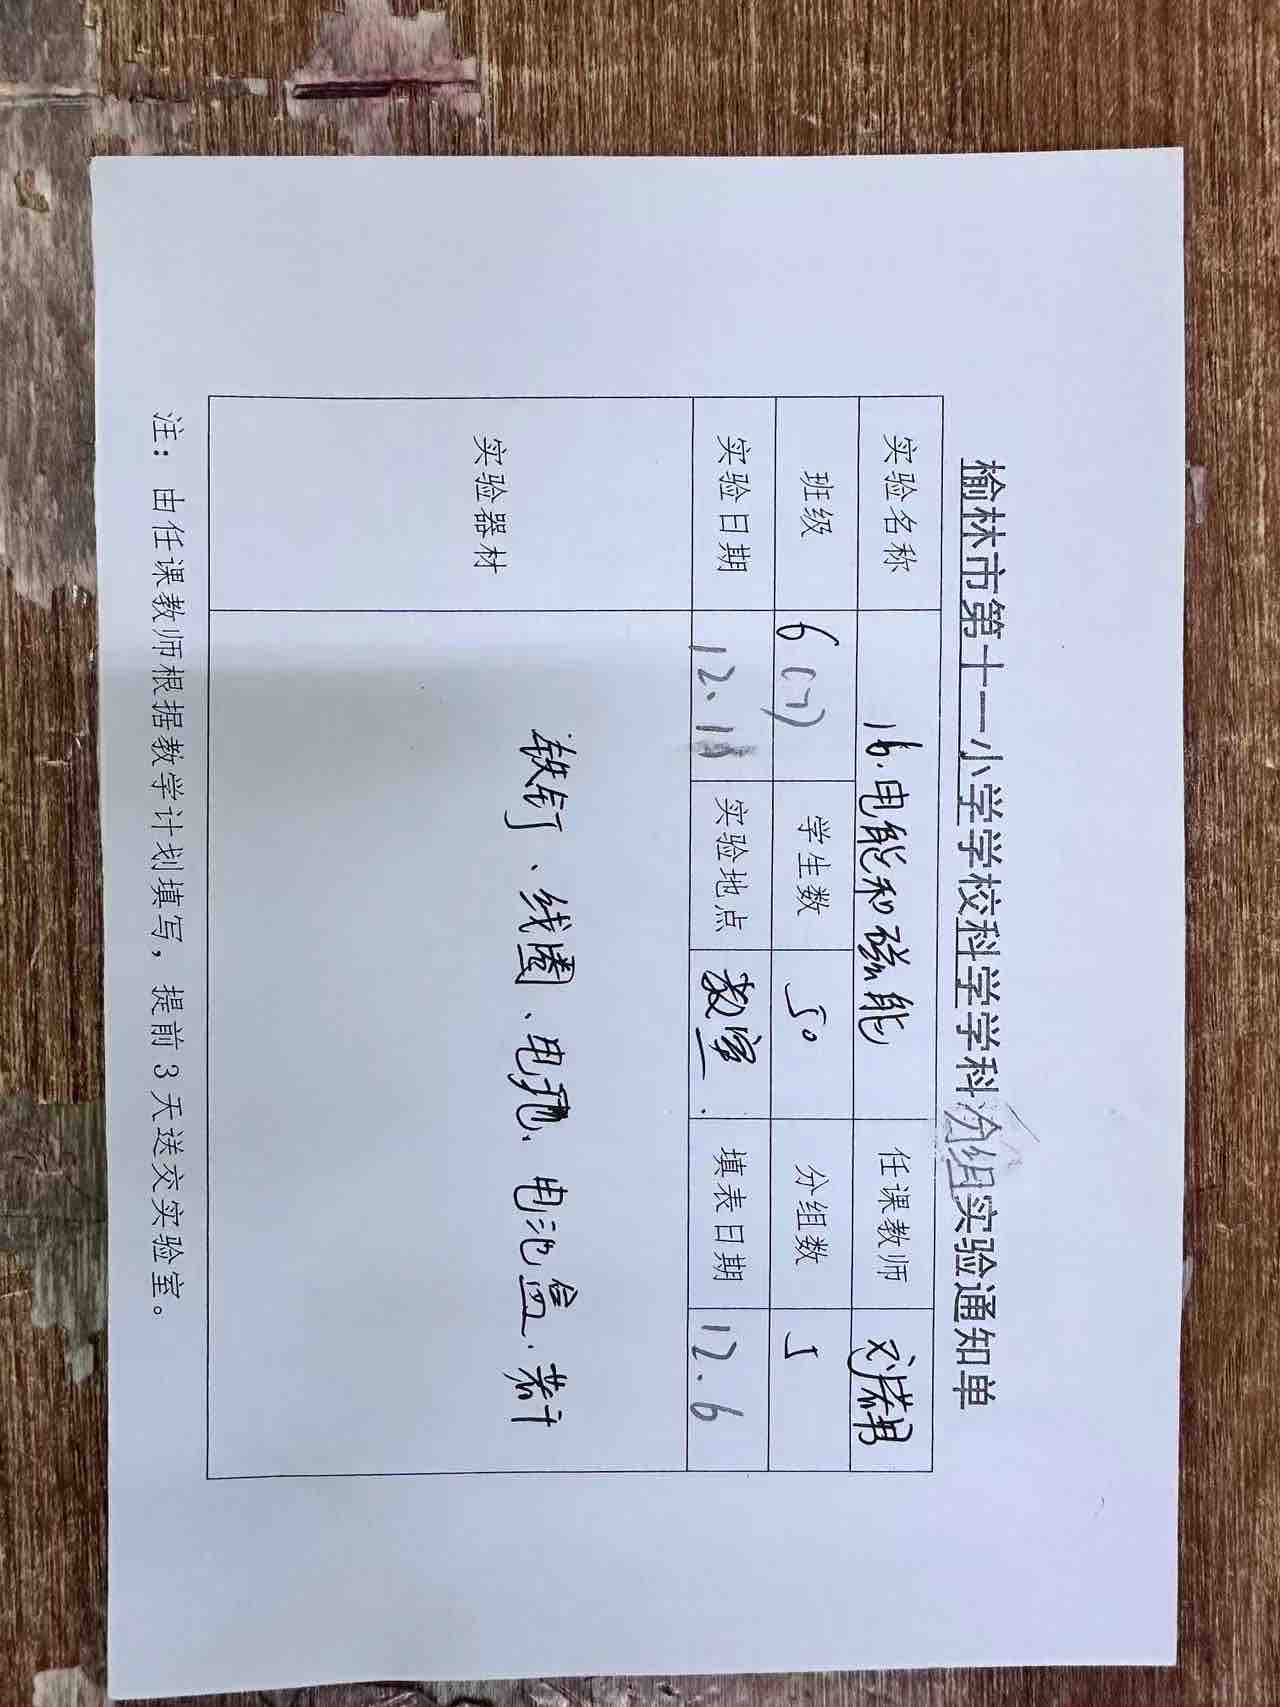 榆林市第十一小学学校科学学科分组实验通知单
实验名称 16.电能和磁能 任课教师
班级 6(7) 学生数 50 分组数 5
实验日期 12.11 实验地点 教室. 填表日期 12.6
实验器材 铁钉、线圈、电池、电池盒、若干
注：由任课教师根据教学计划填写，提前3天送交实验室。